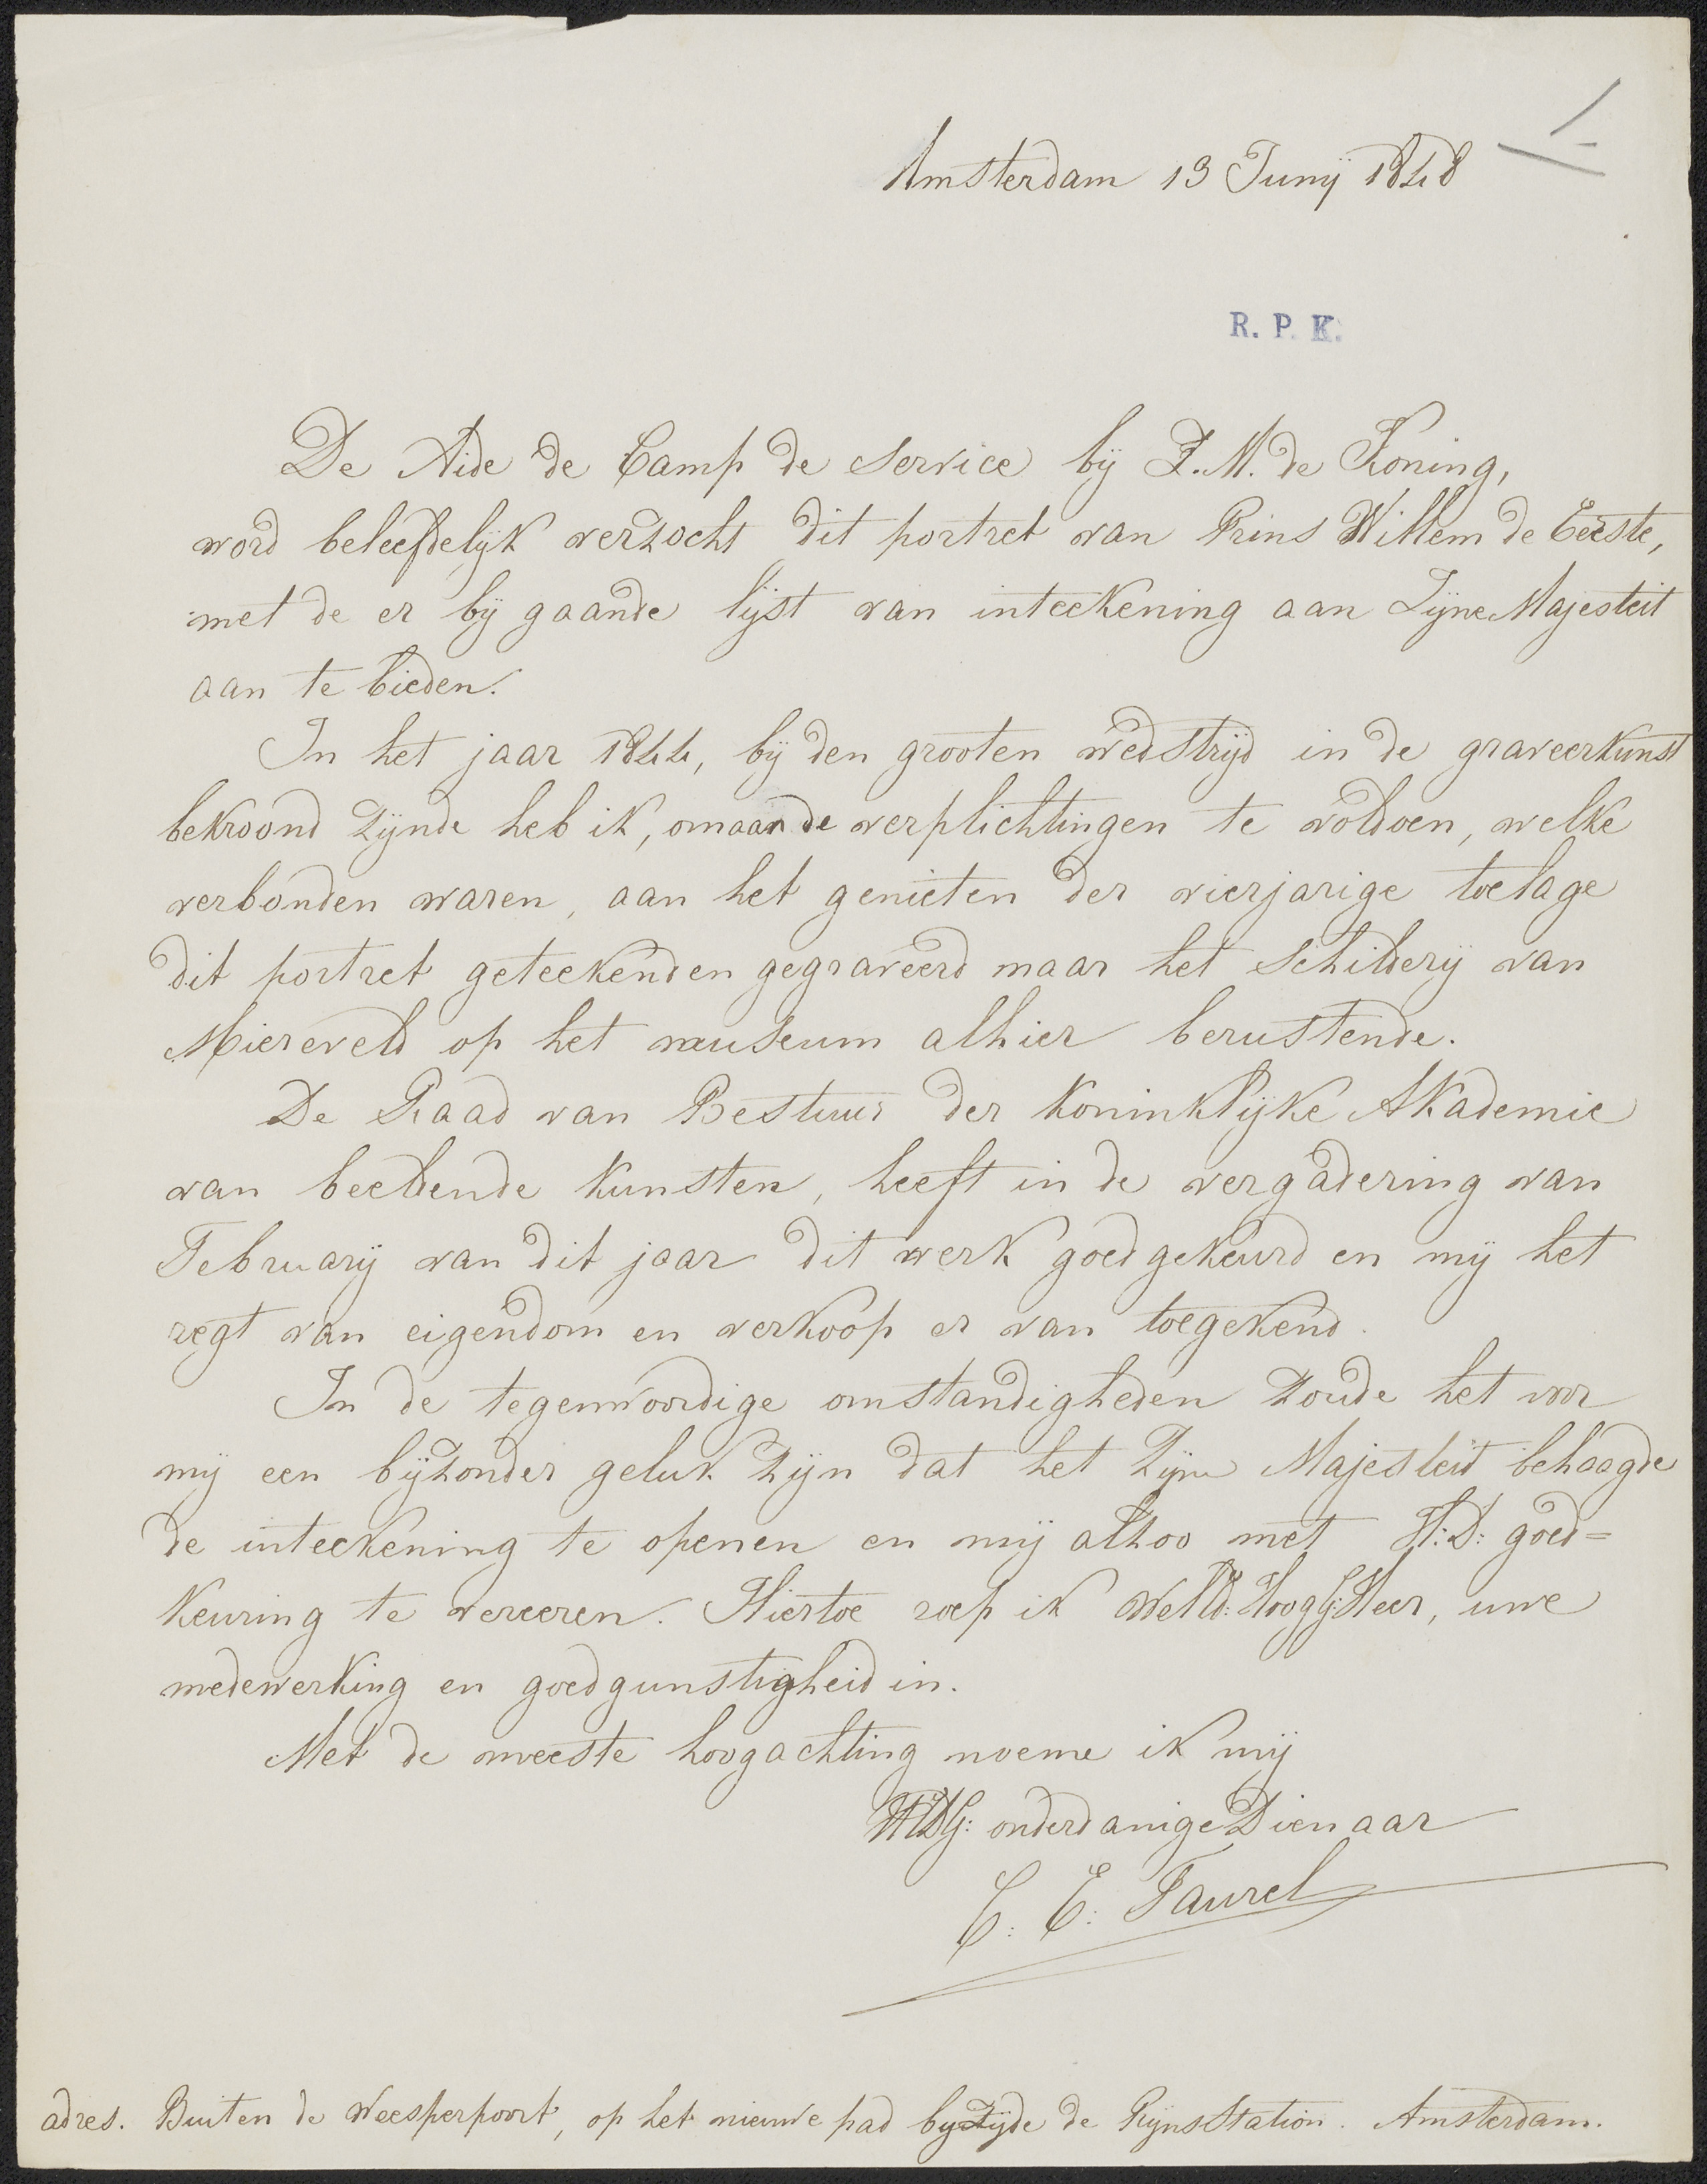 Amsterdam 13 Junij 1848
R. P. K.
De Aide de Camp de service bij Z. M. de Koning,
word beleefdelijk verzocht dit portret van Prins Willem de Eerste,
met de er bij gaande lijst van inteekening aan Zijne Majesteit
aan te bieden.
In het jaar 1844, bij den grooten wedstrijd in de graveerkunst
bekroond zijnde heb ik, om aan de verplichtingen te voldoen, welke
verbonden waren, aan het genieten der vierjarige toelage
dit portret geteekend en gegraveerd naar het schilderij van
Miereveld op het museum alhier berustende.
De Raad van Bestuur der Koninklijke Akademie
van beeldende Kunsten, heeft in de vergadering van
Februarij van dit jaar dit werk goedgekeurd en mij het
regt van eigendom en verkoop er van toegekend.
In de tegenwoordige omstandigheden zoude het voor
mij een bijzonder geluk zijn dat het Zijne Majesteit behaagde
de inteekening te openen en mij alzoo met H: D: goed=
keuring te vereeren. Hiertoe roep ik WelEd: Hoog G: Heer, uwe
medewerking en goedgunstigheid in.
Met de meeste hoogachting noeme ik mij
onderdanige Dienaar
C: E: Taurel
adres. Buiten de Weesperpoort, op het nieuwe pad bezijde de RijnsStation. Amsterdam.